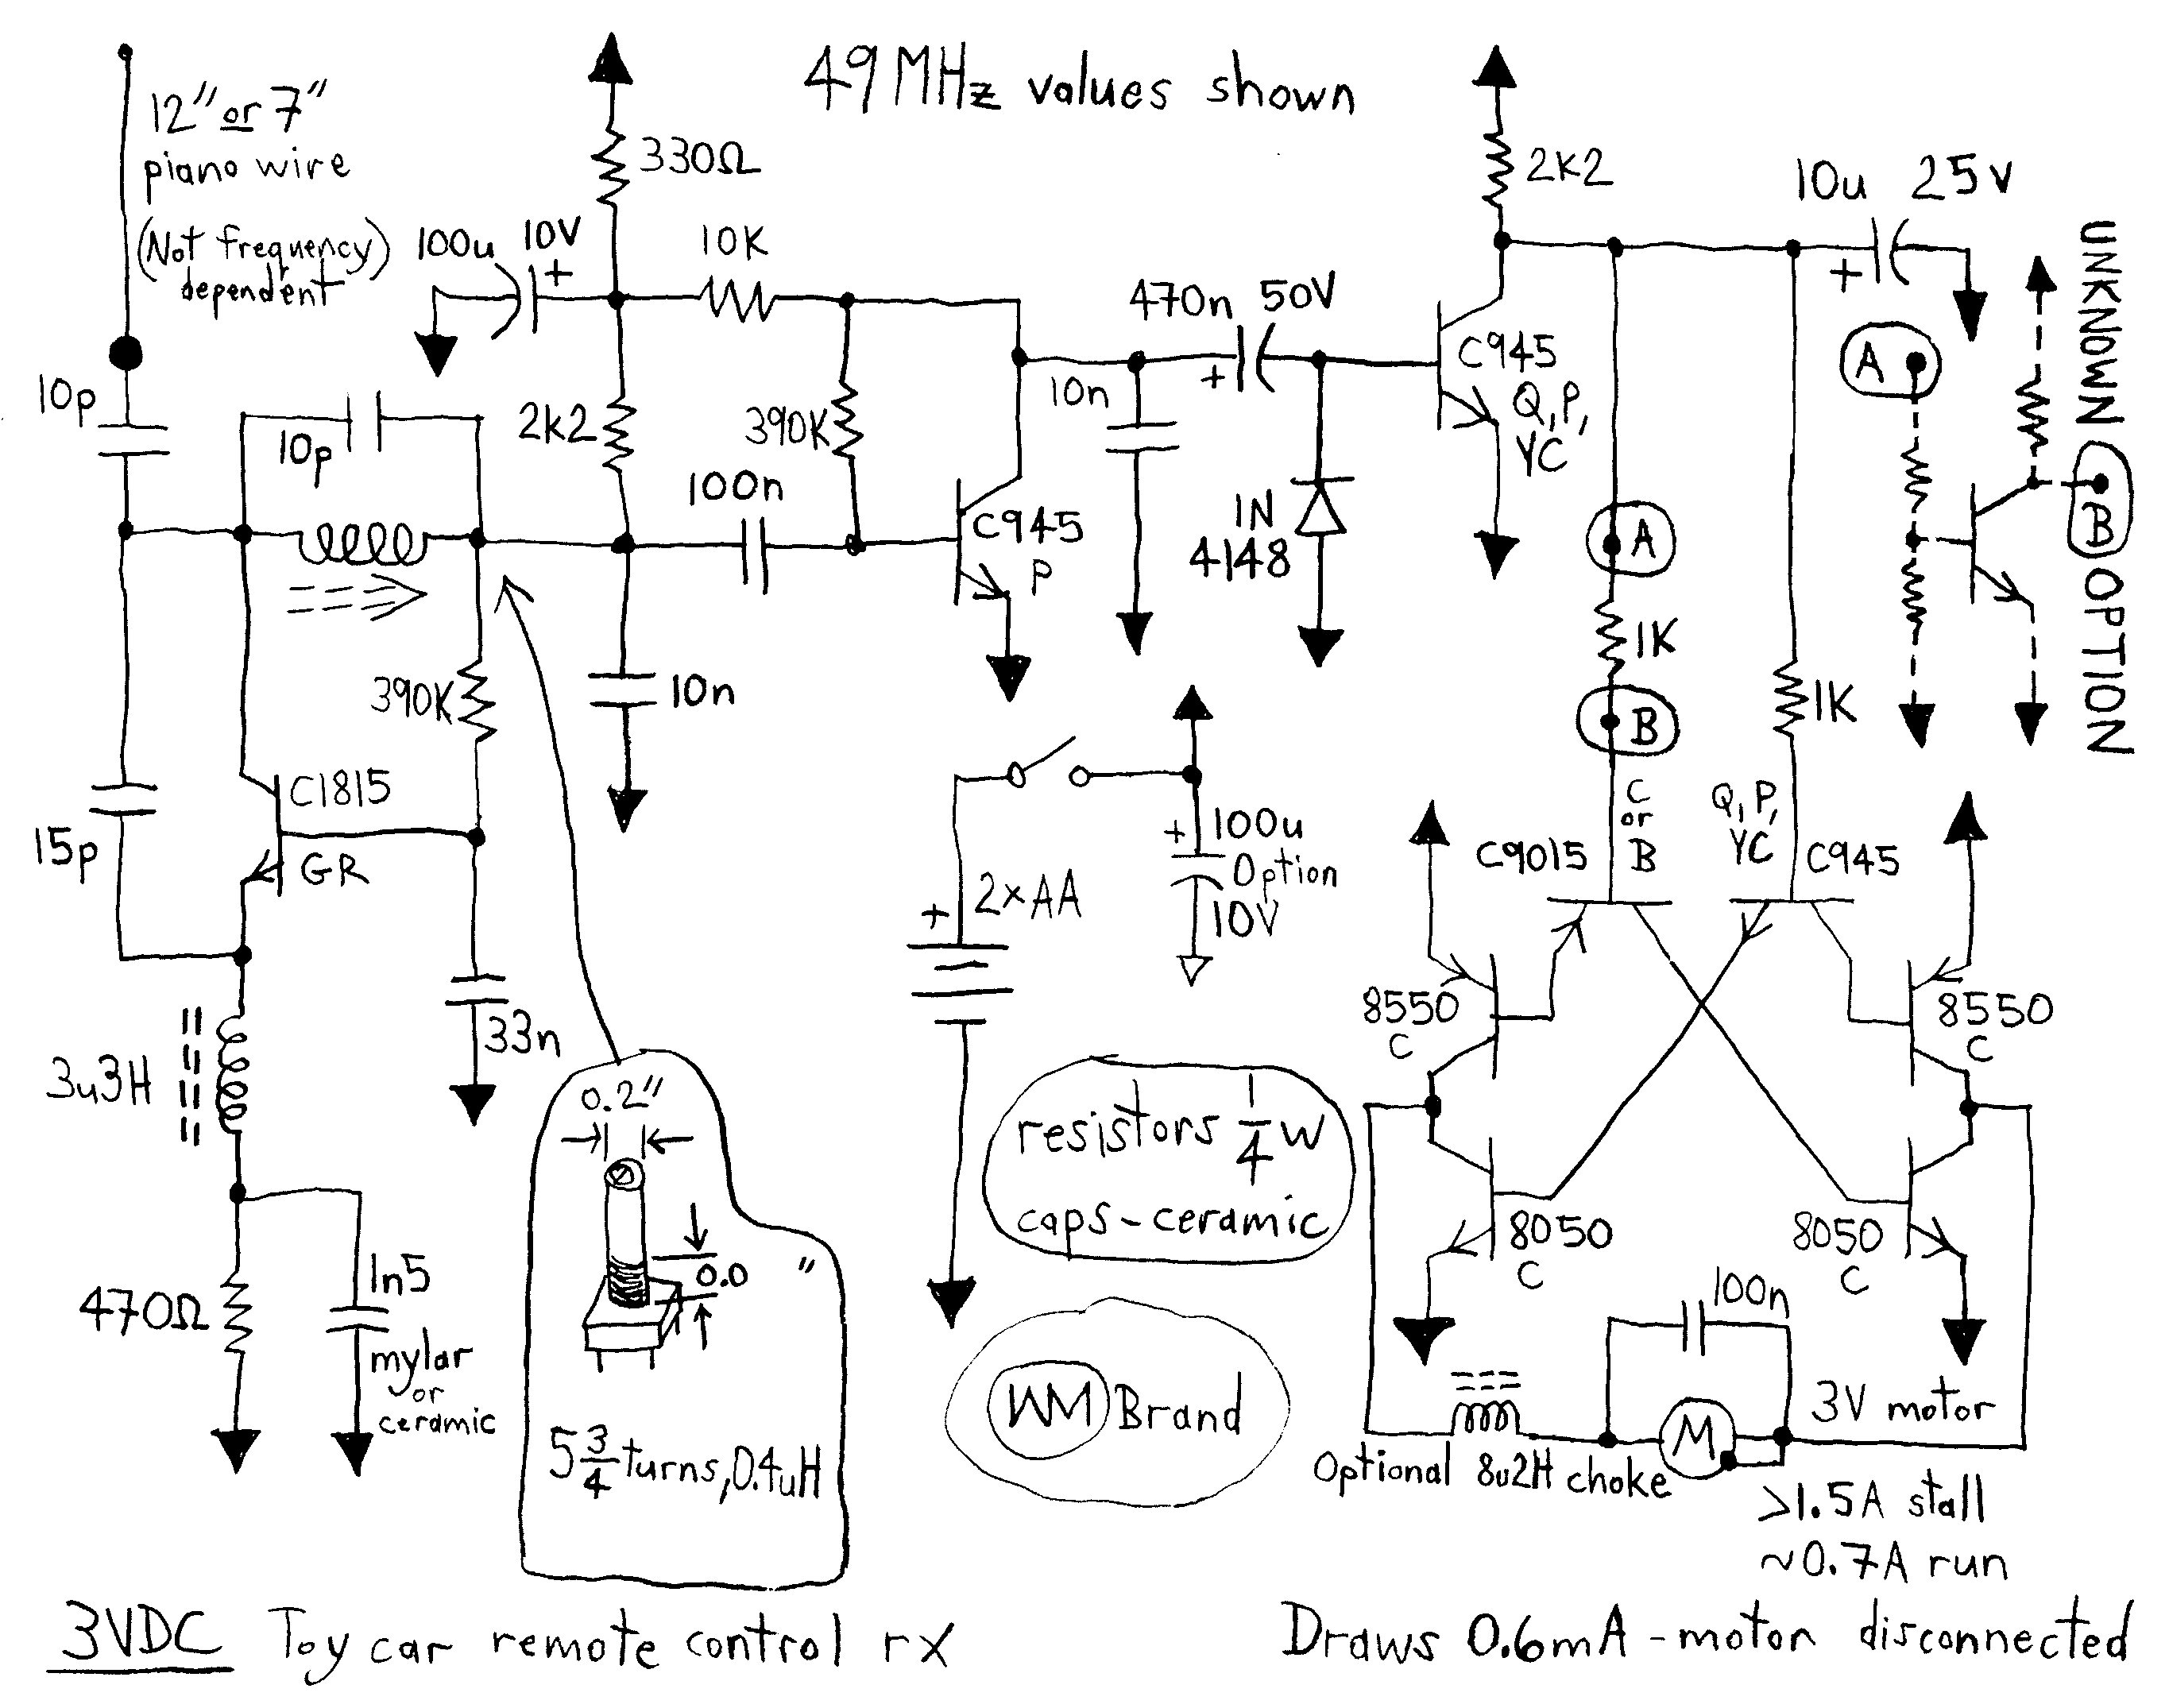 49 MHz values shown
12" or 7"
piano wire
(Not frequency)
dependent
330Ω
100u 10V
+
10K
2K2
10u 25V
+
470n 50V
+
10p
10p
2k2
390K
10n
100n
C945
P
C945
Q, P,
YC
1N
4148
A
1K
B
1K
A
B
UNKNOWN OPTION
390K
10n
C1815
GR
15p
33n
3u3H
470Ω
1n5
mylar
or
ceramic
+ 2xAA
+ 100u
Option
10V
C
or
B
C9015
Q, P,
YC
C945
8550
C
8550
C
8050
C
8050
C
0.2"
0.0 "
5 3/4 turns, 0.4uH
resistors 1/4 W
caps - ceramic
WM Brand
100n
M
3V motor
Optional 8u2H choke
>1.5A stall
~0.7A run
3VDC Toy car remote control rx
Draws 0.6mA - motor disconnected